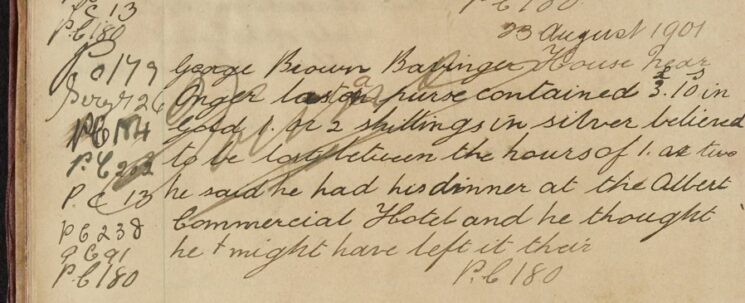 P.C 13 P.C 180
P.C 180
23 August 1901
P C 179 George Brown Ballinger House Near
Sergt 26 Onger lost a purse contained £3.10s in
PC 184 Gold 1. or 2 shillings in silver believed
P.C 202 to be lost between the hours of 1. at two
P.C 13 he said he had his dinner at the Albert
PC 238 Commercial Hotel and he thought
P C 91 he might have left it their
P.C 180 P.C 180